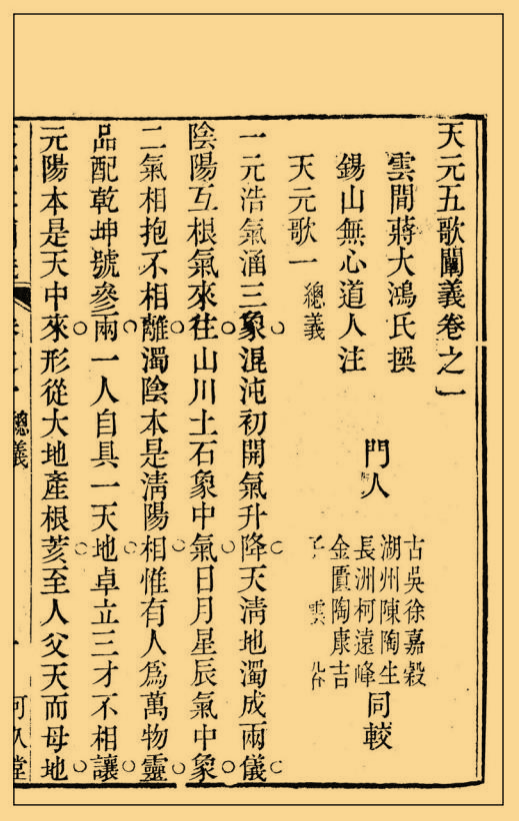 天元五歌闡義卷之一
雲間蔣大鴻氏撰
錫山無心道人注
門人
古吳徐嘉穀
湖州陳陶生
長洲柯遠峰
金匱陶康吉
子雲
同較
天元歌一 總義
一元浩氣涵三象○混沌初開氣升降○天淸地濁成兩儀○
陰陽互根氣來往○山川土石象中氣○日月星辰氣中象○
二氣相抱不相離○濁陰本是淸陽相○惟有人爲萬物靈○
品配乾坤號參兩○一人自具一天地○卓立三才不相讓○
元陽本是天中來○形從大地產根荄○至人父天而母地○
總義
一
可久堂